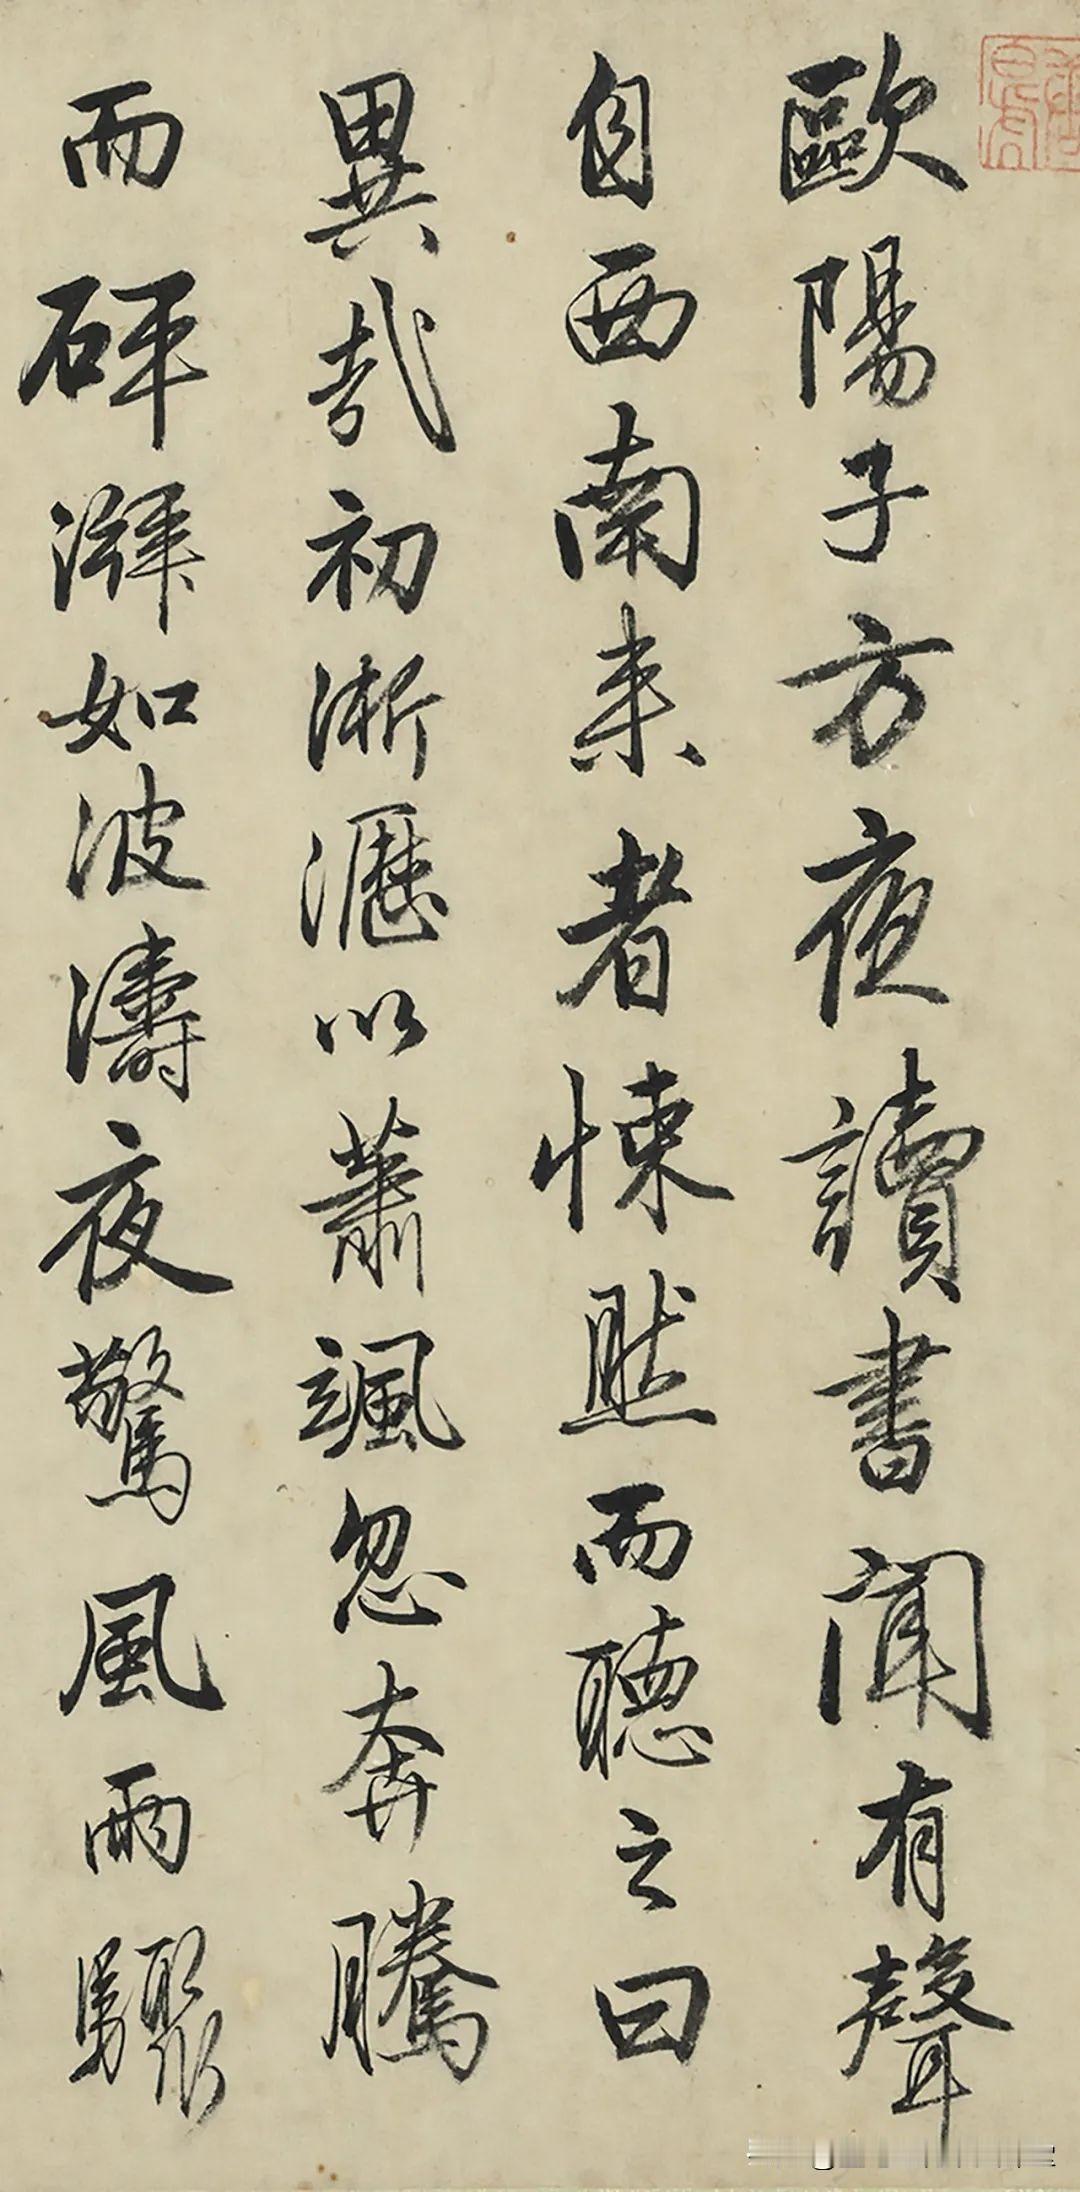 歐陽子方夜讀書聞有聲
自西南來者悚然而聽之曰
異哉初淅瀝以蕭颯忽奔騰
而砰湃如波濤夜驚風雨驟